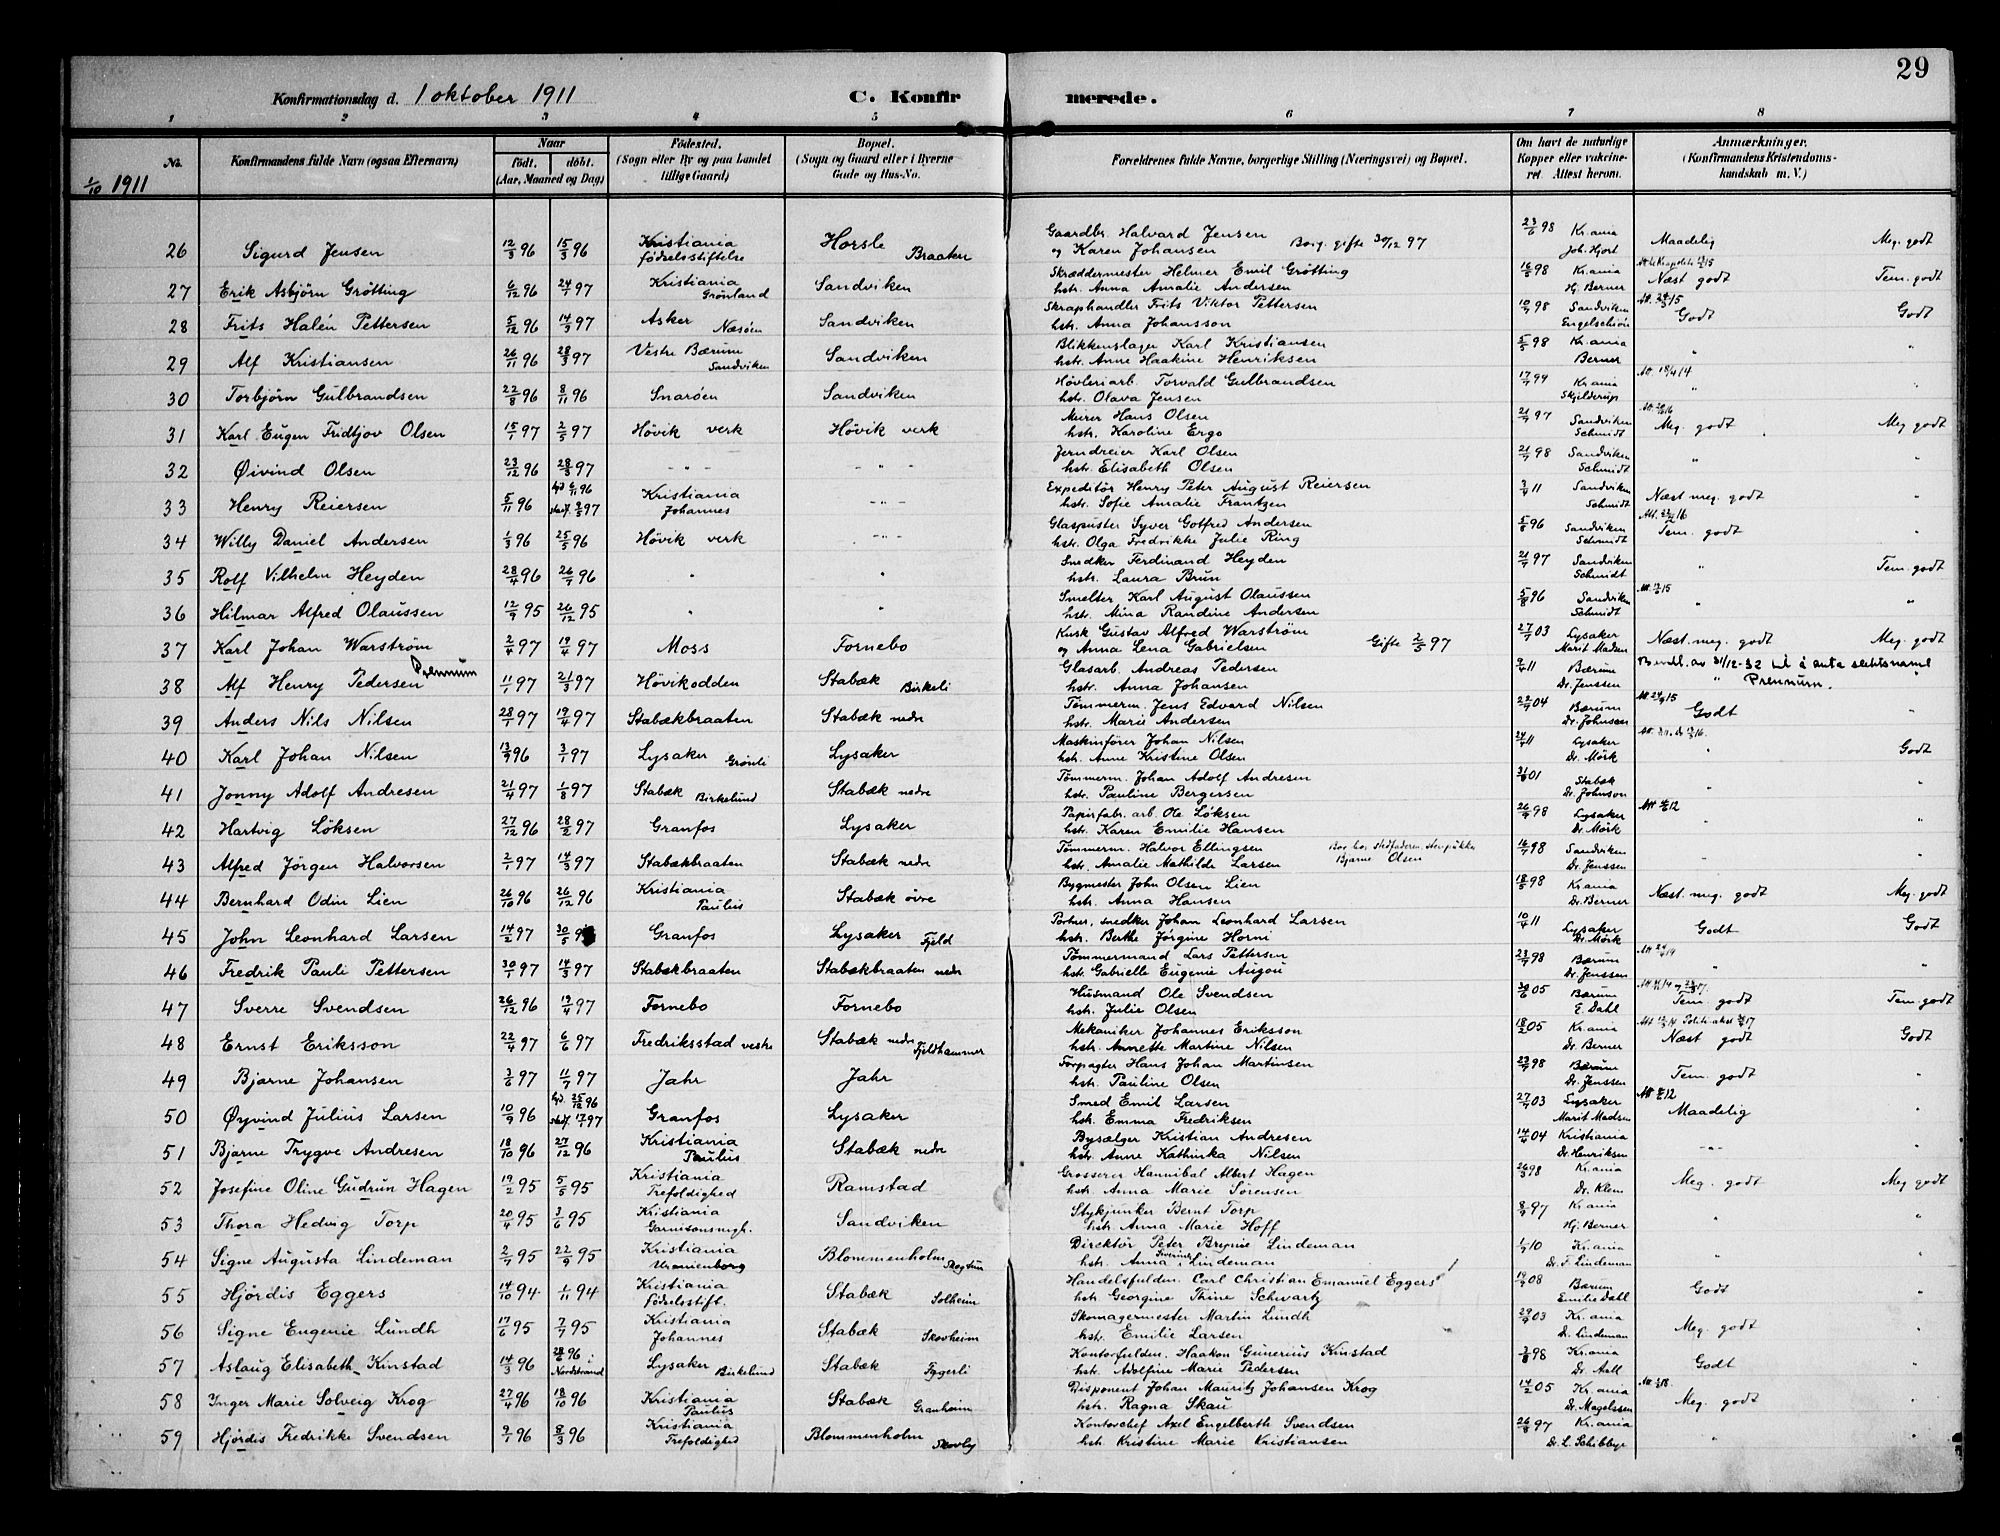 29
Konfirmationsdag d. 1 oktober 1911 C. Konfirmerede.
1 2 3 4 5 6 7 8
No. Konfirmandens fulde Navn (ogsaa Efternavn) Naar født. døbt. (Aar, Maaned og Dag) Fødested. (Sogn eller By og paa Landet tillige Gaard) Bopæl. (Sogn og Gaard eller i Byerne Gade og Hus-No. Forældrenes fulde Navne, borgerlige Stilling (Næringsvei) og Bopæl. Om havt de naturlige Kopper eller vakcineret. Attest herom. Anmærkninger. (Konfirmandens Kristendomskundskab m. V.)
1/10 1911
26 Sigurd Jensen 12/3 96 15/3 96 Kristiania Fødselsstiftelse Horsle Braaten Gaardbr. Halvard Jensen og Karen Johansen Borg. gifte 30/12 97 23/6 98 Kr.ania Joh. Hjort Maadelig Meg. godt
27 Erik Asbjörn Grötting 6/12 96 24/1 97 Kristiania Grönland Sandviken Skræddermester Helmer Emil Grötting hstr. Anna Amalie Andersen 98 Kr.ania Hj. Berner Næst godt Tem. godt
28 Frits Halén Pettersen 5/12 96 14/3 97 Asker Næsöen Sandviken Skraphandler Frits Viktor Pettersen hstr. Anna Johansson 98 Sandviken Engelschiön Godt Godt
29 Alf Kristiansen 26/11 96 28/3 97 Vestre Bærum Sandviken Sandviken Blikkenslager Karl Kristiansen hstr. Anne Haakine Henriksen 98 Kr.ania Berner " "
30 Torbjörn Gulbrandsen 22/8 96 8/11 96 Snaröen Sandviken Hövleriarb. Torvald Gulbrandsen hstr. Olava Jensen Kr.ania Skjelderup Att. 18/4 14 " "
31 Karl Eugen Fridtjov Olsen 15/1 97 2/5 97 Hövik verk Hövik verk Murer Hans Olsen hstr. Karoline Ergo 97 Sandviken Schmidt Meg. godt Meg godt
32 Øivind Olsen 23/12 96 28/3 97 - " - - " - Jerndreier Karl Olsen hstr. Elisabeth Olsen 98 Sandviken Schmidt " "
33 Henry Reiersen 5/11 96 6/11 96 97 Kristiania Johannes - " - Expeditör Henry Peter August Reiersen hstr. Sofie Amalie Frantzen 11 Sandviken Schmidt Næst meg. godt "
34 Willy Daniel Andersen 1/3 96 25/5 96 Hövik verk - " - Glaspuster Syver Gotfred Andersen hstr. Olga Fredrikke Julie Ring 5/8 96 Sandviken Schmidt Tem. godt "
35 Rolf Vilhelm Heyden 28/4 96 26/7 96 " " Snedker Ferdinand Heyden hstr. Laura Brun 97 Sandviken Schmidt " Tem. godt
36 Hilmar Alfred Olaussen 12/9 95 26/12 95 " " Smelter Karl August Olaussen hstr. Mina Randine Andersen 5/8 96 Sandviken Schmidt " "
37 Karl Johan Warström 2/4 97 19/4 97 Moss Fornebo Kusk Gustav Alfred Warström og Anna Lena Gabrielsen Gifte 2/5 97 27/7 03 Lysaker Marit Madsen Næst. meg. godt Meg. godt
38 Alf Henry Pedersen Prennum 11/1 97 21/3 97 Hövikodden Stabæk Birkeli Glasarb. Andreas Pedersen hstr. Anna Johansen 11 Bærum Dr. Jenssen Bevill. av 31/12-32 til å anta slektsnamt Prennum.
39 Anders Nils Nilsen 28/1 97 19/4 97 Stabækbraaten Stabæk nedre Tömmerm. Jens Edvard Nilsen hstr. Marie Andersen 04 Bærum Dr. Johnson Godt "
40 Karl Johan Nilsen 13/9 96 3/1 97 Lysaker Grönli Lysaker Maskinförer Johan Nilsen hstr. Anne Kristine Olsen 11 Lysaker Dr. Mörk " Godt
41 Jonny Adolf Andresen 21/4 97 1/8 97 Stabæk Birkelund Stabæk nedre Tömmerm. Johan Adolf Andresen hstr. Pauline Bergersen 01 Stabæk Dr. Johnson " "
42 Hartvig Löksen 27/12 96 28/2 97 Granfos Lysaker Papirfabr. arb. Ole Löksen hstr. Karen Emilie Hansen 98 Lysaker Dr. Mörk "
43 Alfred Jörgen Halvorsen 2/1 97 14/3 97 Stabækbraaten Stabæk nedre Tömmerm. Halvor Ellingsen hstr. Amalie Mathilde Larsen Bor hos stedfaderen, stenpukker Bjarne Olsen 98 Sandviken Dr. Jenssen "
44 Bernhard Odin Lien 26/10 96 26/12 96 Kristiania Paulus Stabæk övre Bygmester John Olsen Lien hstr. Anna Hansen 98 Kr.ania Dr. Berner Næst. meg. godt Meg. godt
45 John Leonhard Larsen 14/2 97 30/5 Granfos Lysaker Fjeld Portner, snedker Johan Leonhard Larsen hstr. Berthe Jörgine Horni 11 Lysaker Dr. Mörk Godt Godt
46 Fredrik Pauli Pettersen 30/1 97 14/3 97 Stabækbraaten Stabækbraaten nedr Tömmermand Lars Pettersen hstr. Gabrielle Eugenie Augou 98 Bærum Dr. Jenssen " "
47 Sverre Svendsen 26/12 96 19/4 97 Fornebo Fornebo Husmand Ole Svendsen hstr. Julie Olsen 05 Bærum E. Dahl Tem. godt Tem. godt
48 Ernst Eriksson 22/4 97 6/6 97 Fredriksstad vestre Stabæk nedr Fjeldhammer Mekaniker Johannes Eriksson hstr. Annette Martine Nilsen 18/2 05 Kr.ania Dr. Berner Næst godt Godt
49 Bjarne Johansen 3/6 97 11/7 97 Jahr Jahr Forpagter Hans Johan Martinsen hstr. Pauline Olsen 98 Bærum Dr. Jenssen Tem. godt "
50 Øyvind Julius Larsen 10/9 96 25/12 96 97 Granfos Lysaker Smed Emil Larsen hstr. Emma Fredriksen 27/7 03 Lysaker Marit Madsen Maadelig "
51 Bjarne Trygve Andresen 18/10 96 27/12 96 Kristiania Paulus Stabæk nedre Bysælger Kristian Andresen hstr. Anne Kathinka Nilsen 04 Kristiania Dr. Henriksen - " - "
52 Josefine Oline Gudrun Hagen 19/2 95 5/5 95 Kristiania Trefoldighed Ramstad Grosserer Hannibal Albert Hagen hstr. Anna Marie Sörensen 98 Kr.ania Dr. Klem Meg. godt Meg godt
53 Thora Hedvig Torp 20/4 95 3/6 95 Kristiania Garnisonsmgh. Sandviken Stykjunker Bernt Torp hstr. Anna Marie Hoff 97 Kr.ania Hj. Berner " "
54 Signe Augusta Lindeman 2/7 95 22/9 95 Kristiania Uranienborg Blommenholm Skogtun Direktör Peter Brynie Lindeman hstr. Anna Severine Lindeman 10 Kr.ania Dr. F. Lindeman " "
55 Hjördis Eggers 14/10 94 1/11 94 Kristiania Födselsstift. Stabæk Solheim Handelsfuldm. Carl Christian Emanuel Eggers hstr. Georgine Thine Schwartz 08 Bærum Emilie Dahl Godt "
56 Signe Eugenie Lundh 17/6 95 7/7 95 Kristiania Johannes Stabæk Skovheim Skomagermester Martin Lundh hstr. Emilie Larsen 03 Kr.ania D. Lindeman Meg. godt "
57 Aslaug Elisabeth Kinstad 14/3 96 96 i Nordstrand Lysaker Birkelund Stabæk Fyggerli Kontorfuldm. Haakon Gunerius Kinstad hstr. Adolfine Marie Pedersen 98 Kr.ania Dr. Aall Godt "
58 Inger Marie Solveig Krog 27/4 96 18/10 96 Kristiania Paulus Stabæk Granheim Disponent Johan Mauritz Johansen Krog hstr. Ragna Skau 14/2 05 Kr.ania Dr. Magelssen Meg. godt "
59 Hjördis Fredrikke Svendsen 96 8/3 96 Kristiania Trefoldighed Blommenholm Skovly Kontorchef Axel Engelberth Svendsen hstr. Kristine Marie Kristiansen 97 Kr.ania Dr. L. Schibbye " "